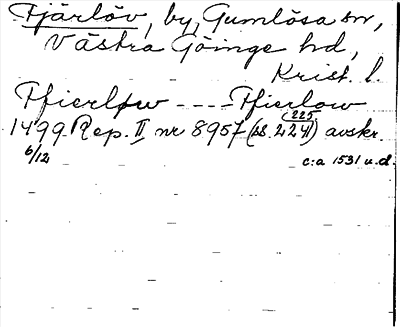 Fjärlöv, by, Gumlösa sn,
Västra Göinge hd,
Krist. l.
Ffierløw - - - - Ffierlow
225
1499 Rep. II, nr 8957 (s. 224) avskr.
6/12 c:a 1531 u.d.